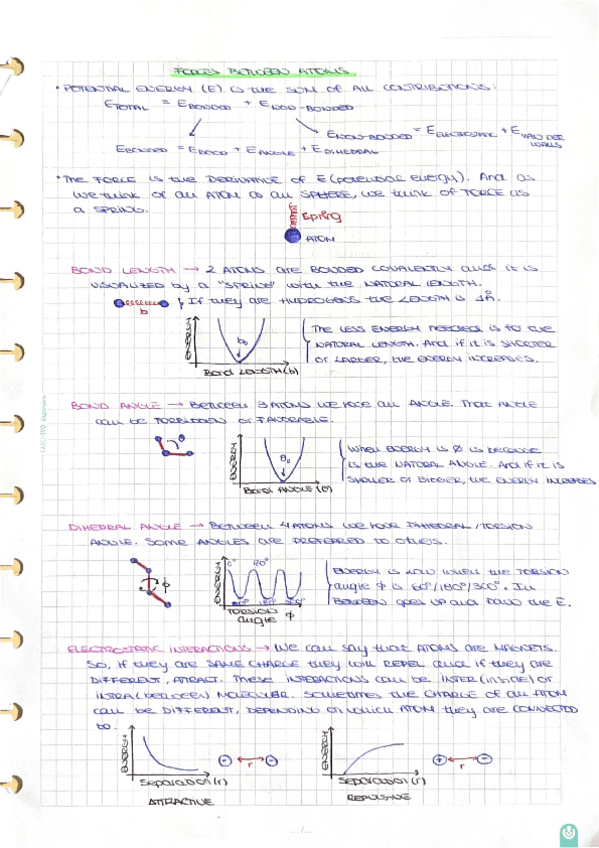 FORCES BETWEEN ATOMS
• POTENTIAL ENERGY (E) IS THE SUM OF ALL CONTRIBUTIONS:
E TOTAL = E BONDED + E NON-BONDED
E NON-BONDED = E ELECTROSTATIC + E VAN DER WALLS
E BONDED = E BOND + E ANGLE + E DIHEDRAL
• THE FORCE IS THE DERIVATIVE OF E (potential energy). And as
we think of an ATOM as an SPHERE, we think of FORCE as
a SPRING.
Spring
ATOM
BOND LENGTH → 2 ATOMS ARE BONDED COVALENTLY and it is
VISUALIZED by a "SPRING" with the NATURAL LENGTH.
b
If they are HYDROGENS the LENGTH IS 1Å.
ENERGY
b₀
Bond LENGTH (b)
THE LESS ENERGY NEEDED is for the
NATURAL LENGTH. And if it is SHORTER
or LARGER, the ENERGY INCREASES.
BOND ANGLE → BETWEEN 3 ATOMS we have an ANGLE. That ANGLE
can be FORBIDDEN or FAVORABLE.
θ
ENERGY
θ₀
Bond ANGLE (θ)
WHEN ENERGY is Ø is because
is the NATURAL ANGLE. And if it is
SMALLER or BIGGER, the ENERGY INCREASES
DIHEDRAL ANGLE → BETWEEN 4 ATOMS we have DIHEDRAL/TORSION
ANGLE. Some ANGLES are PREFERRED to others.
ϕ
ENERGY
0° 120°
60° 180° 300°
TORSION
angle ϕ
ENERGY is LOW when the TORSION
angle ϕ is 60°/180°/300°. In
BETWEEN goes up and down the E.
ELECTROSTATIC INTERACTIONS → We can say that ATOMS are MAGNETS.
So, if they are SAME CHARGE they will REPEL and if they are
DIFFERENT, ATTRACT. These INTERACTIONS can be INTER (inside) or
INTRA (between) MOLECULAR. Sometimes the CHARGE of an ATOM
can be DIFFERENT, DEPENDING on which ATOM they are CONNECTED
to.
ENERGY
Separation (r)
ATTRACTIVE
- r -
ENERGY
Separation (r)
REPULSIVE
+ r -